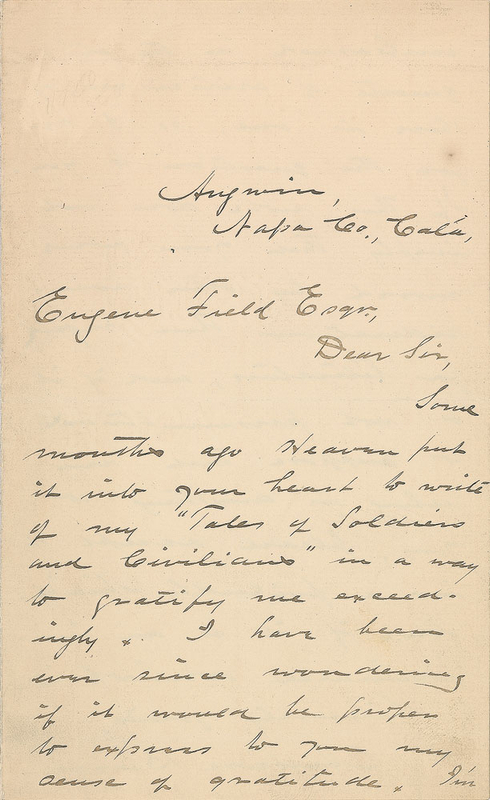 Angwin,
Napa Co., Cala,
Eugene Field Esqr.,
Dear Sir,
Some
months ago Heaven put
it into your heart to write
of my "Tales of Soldiers
and Civilians" in a way
to gratify me exceed-
ingly. I have been
ever since wondering
if it would be proper
to express to you my
sense of gratitude. I'm